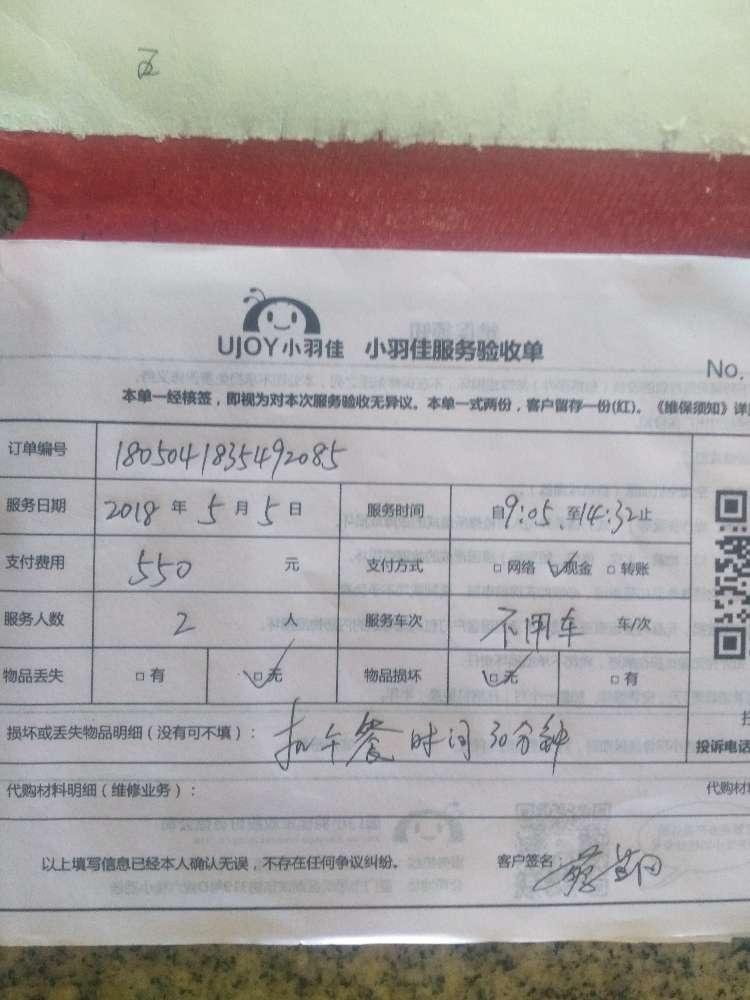 UJOY小羽佳 小羽佳服务验收单
No.
本单一经核签，即视为对本次服务验收无异议。本单一式两份，客户留存一份(红)。《维保须知》详
订单编号 1805041835492085
服务日期 2018 年 5 月 5 日 服务时间 自9:05至14:32止
支付费用 550 元 支付方式 □ 网络 ☑现金 □ 转账
服务人数 2 人 服务车次 不用车 车/次
物品丢失 □ 有 ☑无 物品损坏 ☑无 □ 有
损坏或丢失物品明细（没有可不填）： 扣午餐时间30分钟
投诉电话
代购材料明细（维修业务）： 代购材
以上填写信息已经本人确认无误，不存在任何争议纠纷。 客户签名：